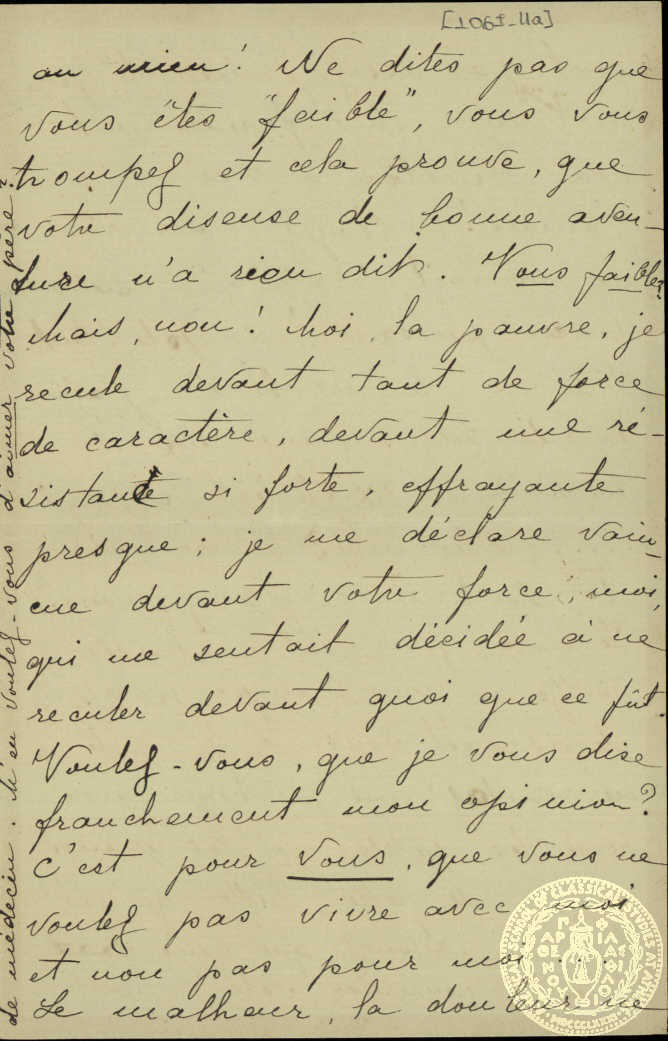 [106f-11a]
au mien! Ne dites pas que
vous êtes "faible", vous vous
trompez et cela prouve, que
votre diseuse de bonne aven-
ture n'a rien dit. Vous faible?
Mais, non! Moi, la pauvre, je
recule devant tant de force
de caractère, devant une ré-
sistance si forte, effrayante
presque; je me déclare vain-
cue devant votre force, moi,
qui me sentait décidée à ne
reculer devant quoi que ce fût.
Voulez-vous, que je vous dise
franchement mon opinion?
C'est pour vous, que vous ne
voulez pas vivre avec moi
et non pas pour moi ...
Le malheur, la douleur ne
de médecin. M'en voulez-vous d'aimer votre père?